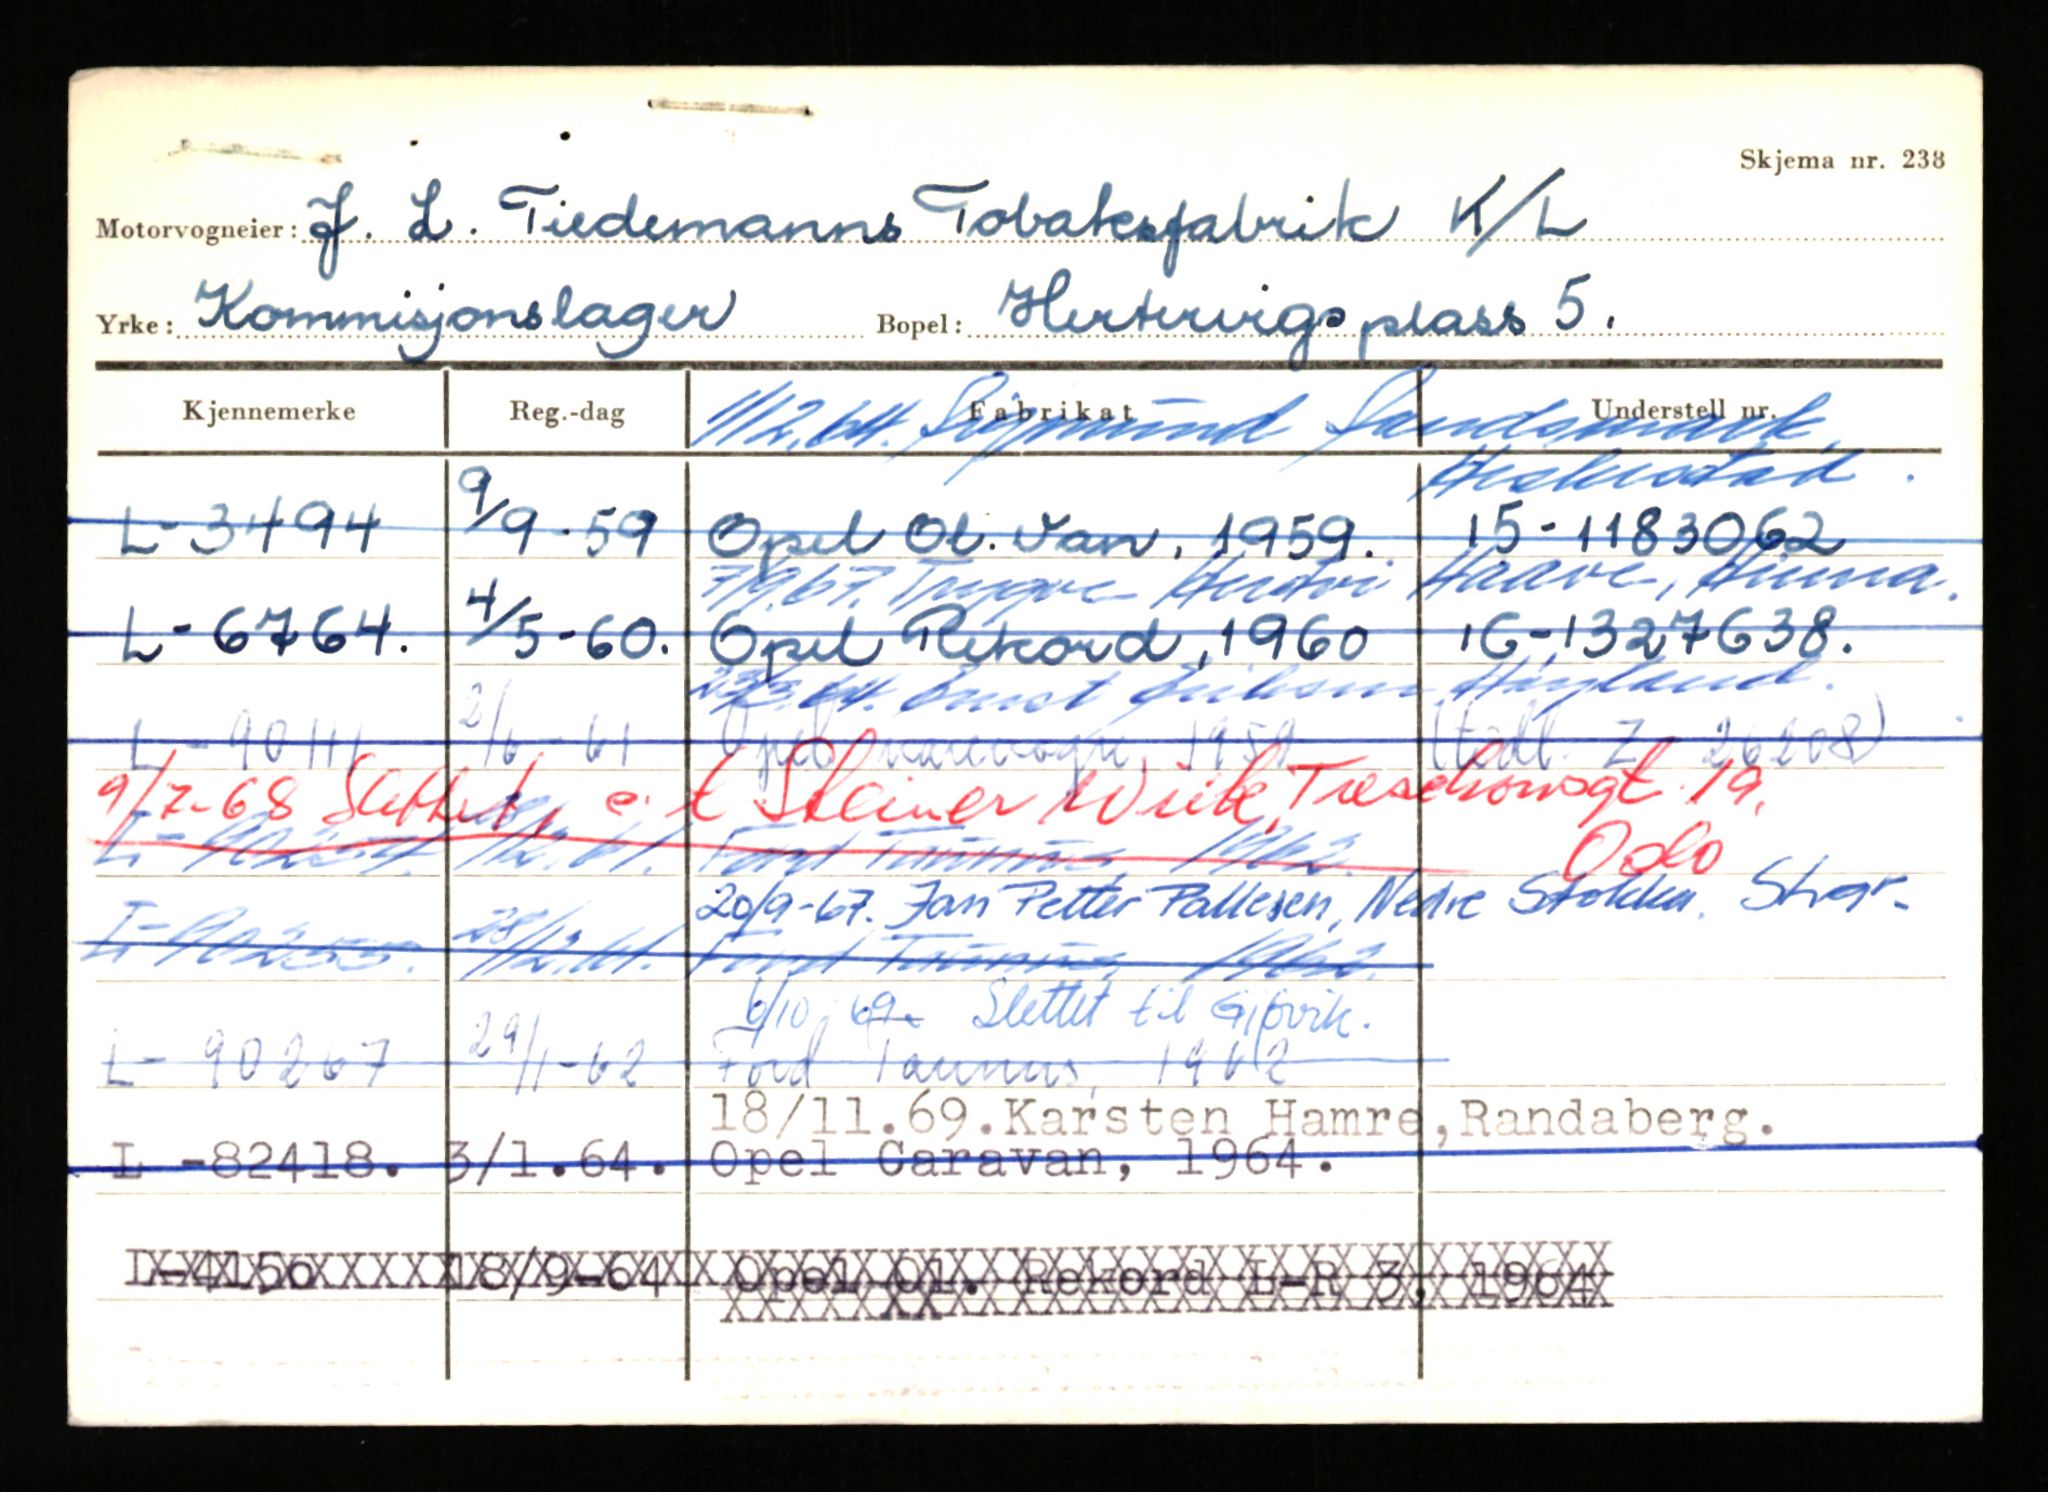 Skjema nr. 238
Motorvogneier: J. L. Tiedemanns Tobaksfabrik K/L
Yrke: Kommisjonslager Bopel: Hertervigsplass 5.
Kjennemerke Reg.-dag Fabrikat Understell nr.
11/2.64. Sigmund Sandsmark,
L-3494 9/9-59 Opel Ol. Van, 1959. 15-1183062
7/9.67. Trygve Haave, Hinna.
L-6764. 4/5-60. Opel Rekord, 1960 16-1327638.
23/3.64. Høyland.
L-90111 2/6-61 Opel varevogn 1959 (tidl. Z 26208)
9/7-68 Slettet, e.t Steiner Wiik, Treschowsgt 19,
Oslo
/12.61. Ford Taunus, 1962.
20/9-67. Jan Petter Pallesen, Nedre Stokka. Stvgr-
L-90255. 28/12.61. Ford Taunus, 1962.
6/10-69. Slettet til Gjøvik.
L-90267 29/1-62 Ford Taunus, 1962
18/11.69.Karsten Hamre,Randaberg.
L -82418. 3/1.64. Opel Caravan, 1964.
L-4156 18/9-64 Opel Ol. Rekord L-R 3, 1964